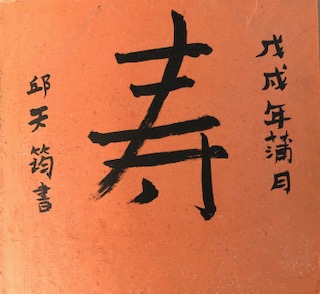 戊戌年蒲月
寿
邱天筠書